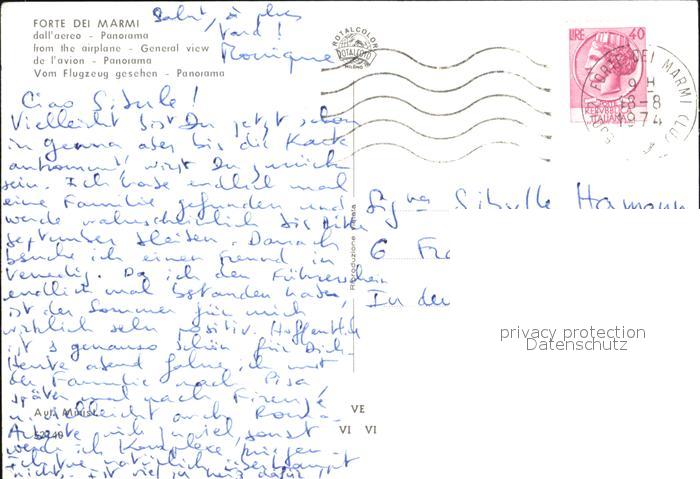 FORTE DEI MARMI
dall'aereo - Panorama
from the airplane - General view
de l'avion - Panorama
Vom Flugzeug gesehen - Panorama
Salut, à plus
tard!
Monique
ROTALCOLOR
ROTALFOTO
MILANO
LIRE 40
REPVBBLICA
ITALIANA
FORTE DEI MARMI
9 H
8-8
1974
Ciao Sibylle!
Vielleicht bist Du jetzt schon
in genua aber bis die Karte
ankommt wirst Du zurück
sein. Ich habe endlich mal
eine Familie gefunden und
werde wahrscheinlich bis
september bleiben. Danach
besuche ich einen Freund in
Venedig. Da ich den Führerschein
endlich mal bestanden habe,
ist der Sommer für mich
wirklich sehr positiv. Hoffentlich
ist's genauso schön für Dich
Heute abend fahre ich mit
der Familie nach Pisa,
später mal nach Firenze
u. vielleicht auch Rom -
Arbeite nich zuviel, sonst
werde ich Komplexe kriegen
Ich tue natürlich überhaupt
nicht, ist viel zu heiz dazu
Riproduzione vietata
Sig.na Sibylle Hamann
6 Fra
In der
VE
VI VI
privacy protection
Datenschutz